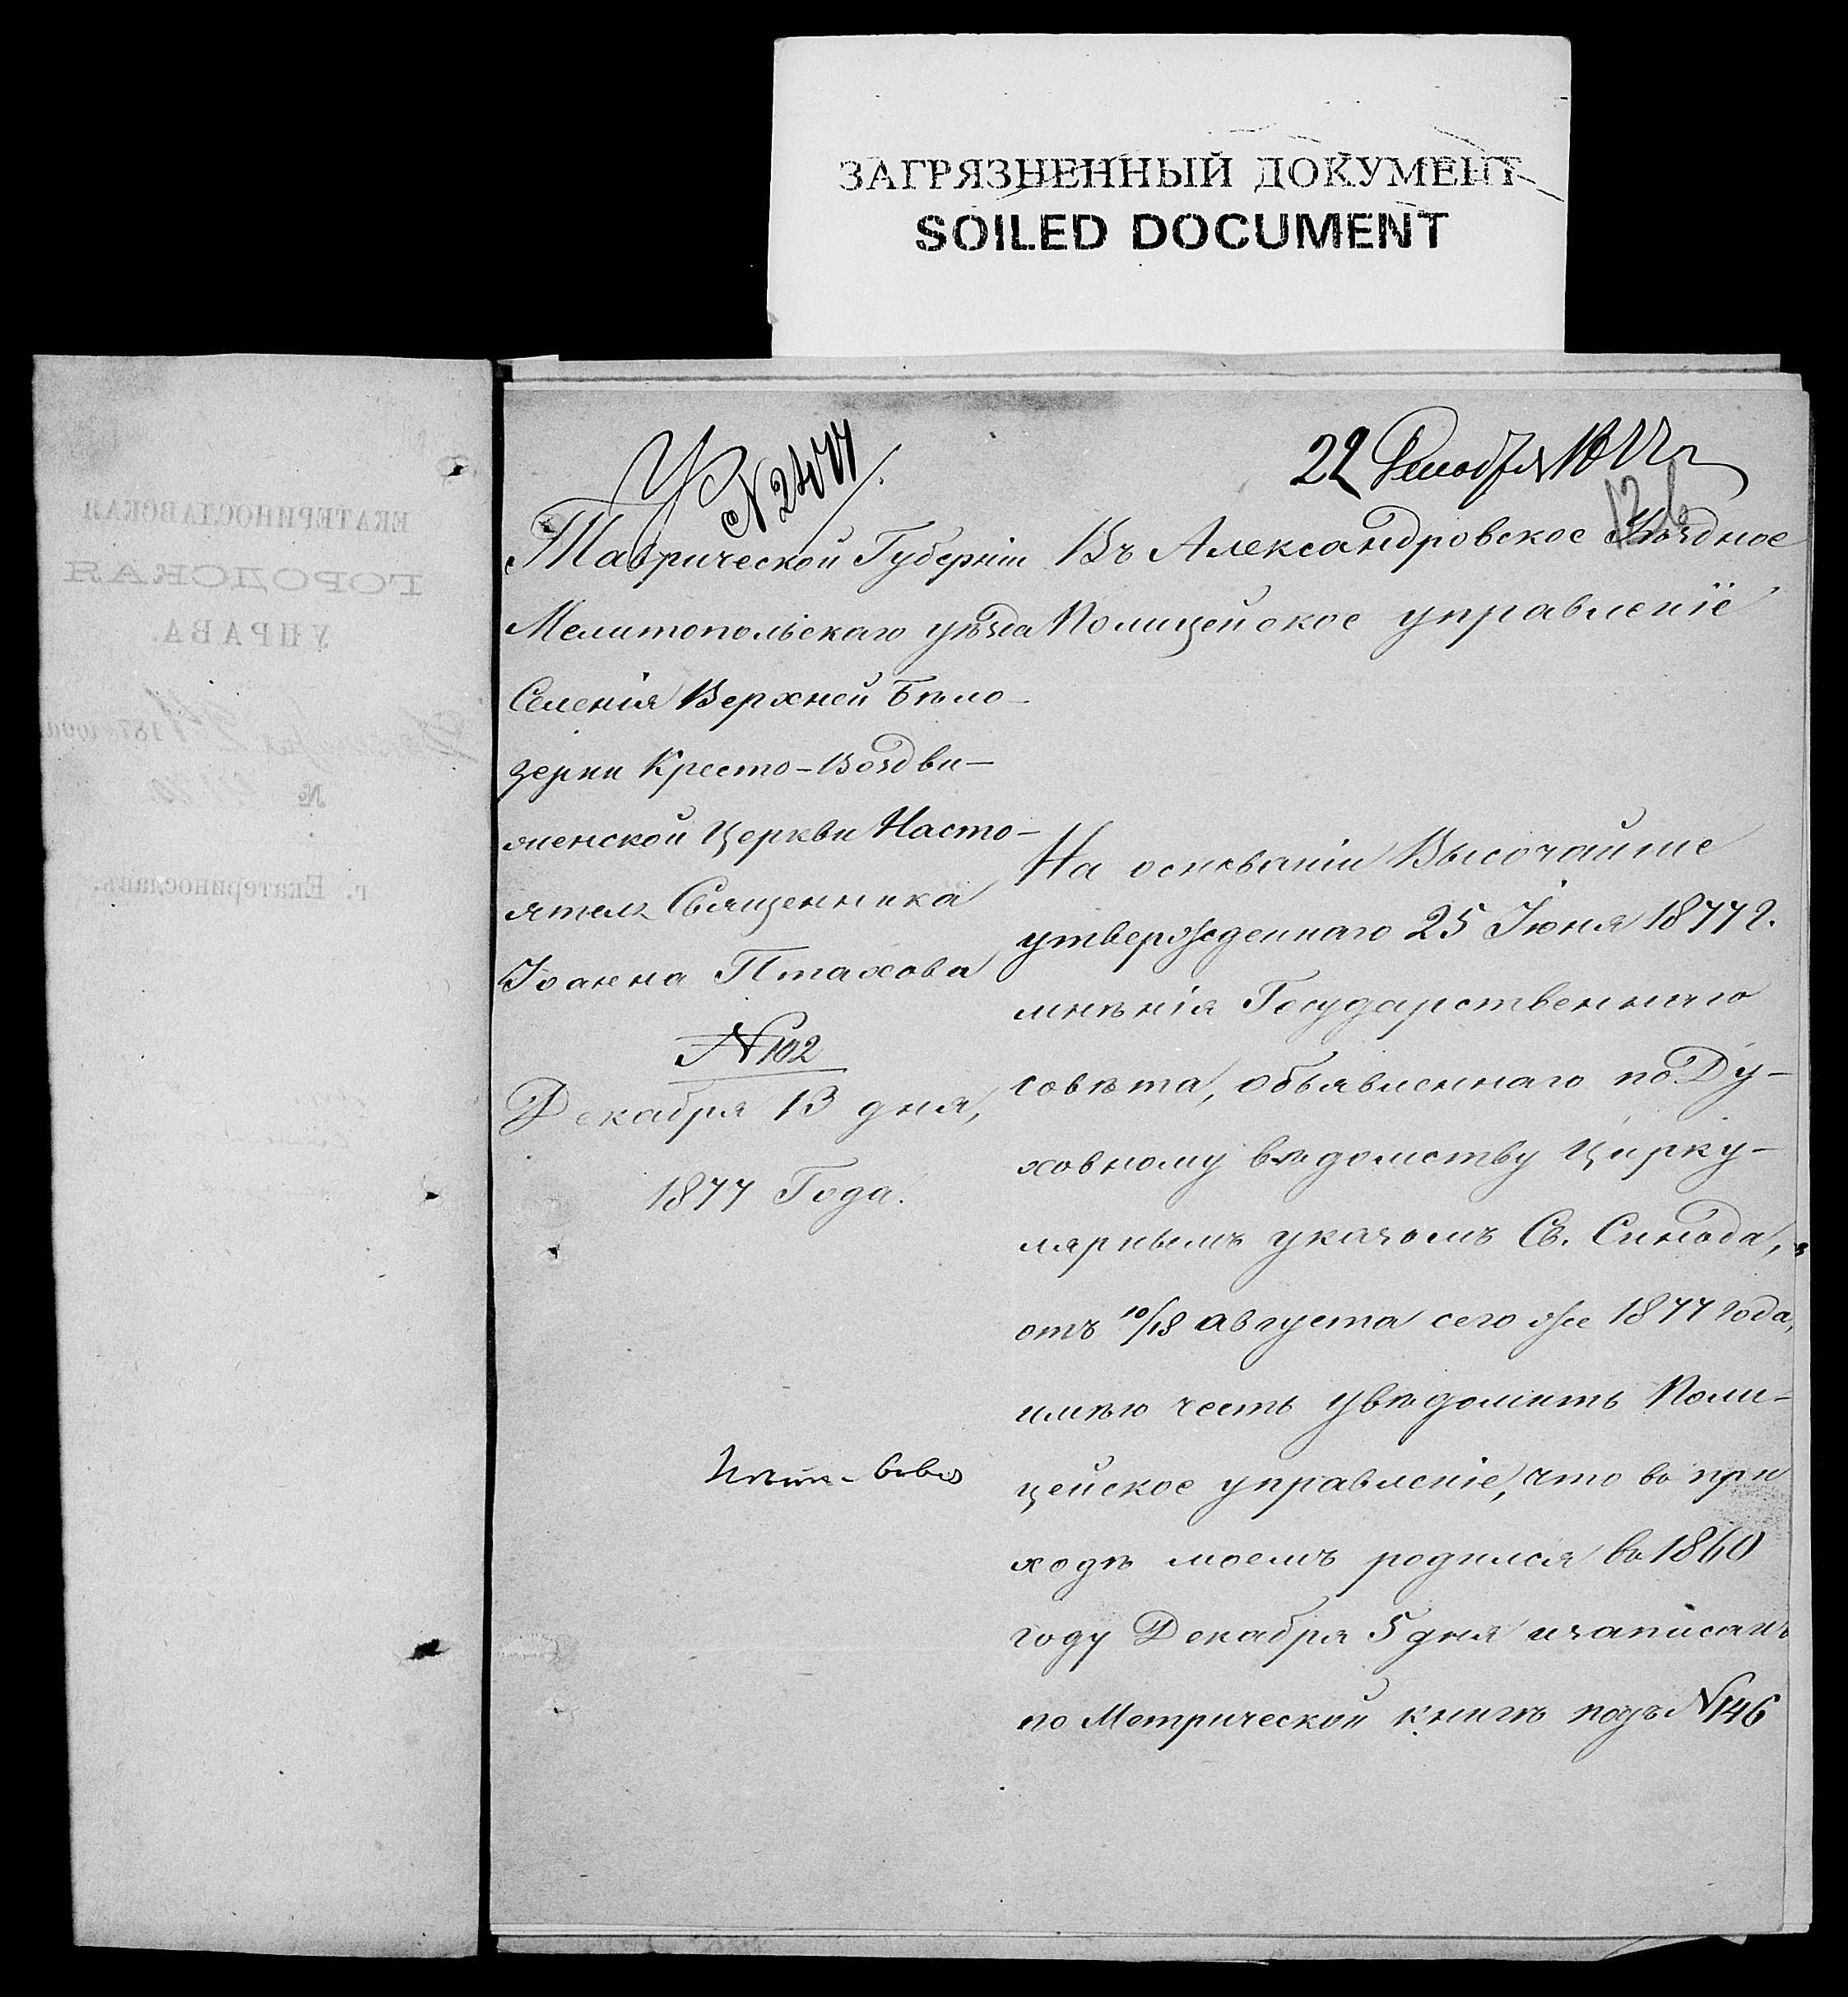 ЗАГРЯЗНЕННЫЙ ДОКУМЕНТ
SOILED DOCUMENT
ЕКАТЕРИНОСЛАВСКАЯ
ГОРОДСКАЯ
УПРАВА.
187
№
г. Екатеринославъ.
22 Декабря 1877 г
126
Таврической Губерніи
Мелитопольскаго уѣзда
Селенія Верхней Бѣло-
зерки Кресто-Воздви-
женской Церкви Насто-
ятеля Священника
Іоанна Птахова
№ 102
Декабря 13 дня,
1877 Года.
Въ Александровское Уѣздное
Полицейское управленіе
На основаніи Высочайше
утвержденнаго 25 Іюня 1877 г.
мнѣнія Государственнаго
совѣта, объявленнаго по Ду-
ховному вѣдомству Цирку-
лярнымъ указомъ Св. Синода,
отъ 10/18 августа сего же 1877 года,
имѣю честь увѣдомить Поли-
цейское управленіе, что въ при
ходѣ моемъ родился въ 1860
году Декабря 5 дня и записанъ
по Метрической книгѣ подъ № 146